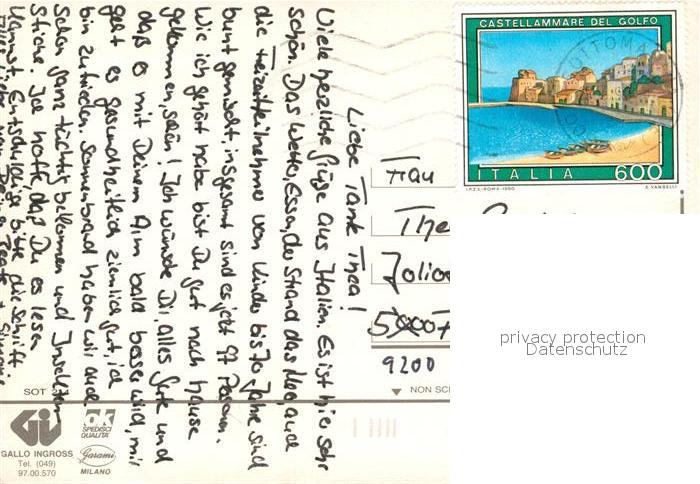 CASTELLAMMARE DEL GOLFO
ITALIA 600
I.P.Z.S.-ROMA-1990
E. VANGELLI
Liebe Tante Thea!
Viele herzliche Grüße aus Italien. Es ist hier sehr
schön. Das Wetter, Essen, der Strand das Meer, auch
die Freizeitteilnehmer von Kinder bis 70 Jahre sind
bunt gemischt, insgesamt sind es jetzt 97 Personen.
Wie ich gehört habe bist Du gut nach hause
gekommen, schön! Ich wünsche Dir alles Gute und
daß es mit Deinem Arm bald besser wird, mir
geht es gesundheitlich ziemlich gut, ich
bin zufrieden. Sonnenbrand haben wir auch
schon ganz tüchtig bekommen und Insekten
stiche. Ich hoffe, daß Du es lesen
kannst. Entschuldige bitte die Schrift
Frau
The
Julio
9200
privacy protection
Datenschutz
SOT
NON SC
GALLO INGROSS
Tel. (049)
97.00.570
OK
SPEDISCI
QUALITA'
Garami
MILANO